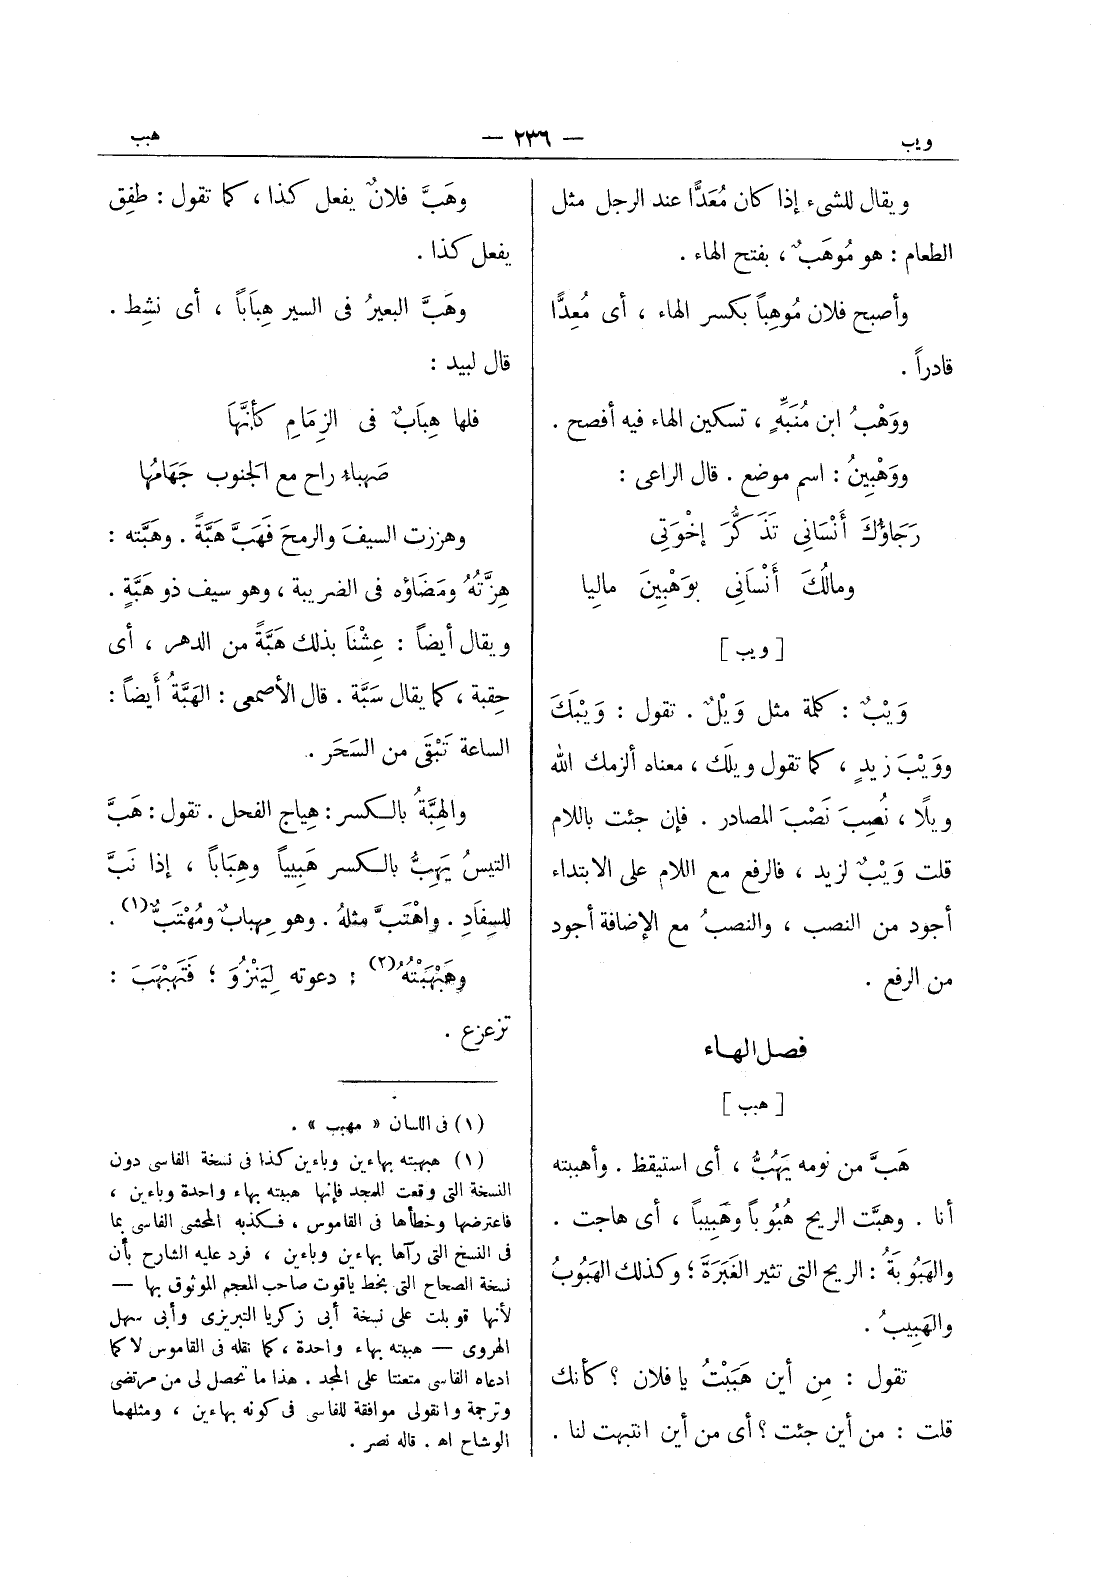 ويب
— ٢٣٦ —
هبب
ويقال للشىء إذا كان مُعَدًّا عند الرجل مثل
الطعام : هو مُوهَبٌ ، بفتح الهاء .
وأصبح فلان مُوهِباً بكسر الهاء ، أى مُعِدًّا
قادراً .
ووَهْبُ ابن مُنَبِّهٍ ، تسكين الهاء فيه أفصح .
ووَهْبِينُ : اسم موضع . قال الراعى :
رَجَاؤُكَ أَنْسَانِى تَذَكُّرَ إخْوَتِى
ومالُكَ أَنْسَانِى بوَهْبِينَ ماليا
[ ويب ]
وَيْبٌ : كلمة مثل وَيْلٌ . تقول : وَيْبَكَ
ووَيْبَ زيدٍ ، كما تقول ويلَك ، معناه ألزمك الله
ويلًا ، نُصِبَ نَصْبَ المصادر . فإن جئت باللام
قلت وَيْبٌ لزيد ، فالرفع مع اللام على الابتداء
أجود من النصب ، والنصبُ مع الإضافة أجود
من الرفع .
فصل الهاء
[ هبب ]
هَبَّ من نومه يَهُبُّ ، أى استيقظ . وأهببته
أنا . وهبَّت الريح هُبُوباً وهَبِيباً ، أى هاجت .
والهَبُوبَةُ : الريح التى تثير الغَبَرَةَ ؛ وكذلك الهَبُوبُ
والهَبِيبُ .
تقول : مِن أين هَبَبْتُ يا فلان ؟ كأنك
قلت : من أين جئت ؟ أى من أين انتبهت لنا .
وهَبَّ فلانٌ يفعل كذا ، كما تقول : طفِق
يفعل كذا .
وهَبَّ البعيرُ فى السير هِبَاباً ، أى نشِط .
قال لبيد :
فلها هِبَابٌ فى الزِمَامِ كأنَّهَا
صَهباء راح مع الجنوب جَهَامُها
وهززت السيفَ والرمحَ فَهَبَّ هَبَّةً . وهَبَّته :
هِزَّتُهُ ومَضَاؤه فى الضريبة ، وهو سيف ذو هَبَّةٍ .
ويقال أيضاً : عِشْنَا بذلك هَبَّةً من الدهر ، أى
حِقبة ، كما يقال سَبَّة . قال الأصمعى : الهَبَّةُ أيضاً :
الساعة تَبْقَى من السَحَر .
والهِبَّةُ بالكسر : هِياج الفحل . تقول : هَبَّ
التيسُ يَهِبُّ بالكسر هَبِيباً وهِبَاباً ، إذا نَبَّ
للسِفادِ . واهْتَبَّ مثلهُ . وهو مِهبابٌ ومُهْتَبٌّ (١) .
وهَبْهَبْتُهُ (٢) : دعوته لِيَنْزُوَ ؛ فَتَهَبْهَبَ :
تزعزع .
(١) فى اللسان « مهبب » .
(١) هبهبته بهاءين وباءين كذا فى نسخة الفاسى دون
النسخة التى وقعت للمجد فإنها هببته بهاء واحدة وباءين ،
فاعترضها وخطأها فى القاموس ، فكذبه المحشى الفاسى بما
فى النسخ التى رآها بهاءين وباءين ، فرد عليه الشارح بأن
نسخة الصحاح التى بخط ياقوت صاحب المعجم الموثوق بها —
لأنها قوبلت على نسخة أبى زكريا التبريزى وأبى سهل
الهروى — هببته بهاء واحدة ، كما نقله فى القاموس لا كما
ادعاه الفاسى متعنتا على المجد . هذا ما تحصل لى من مرتضى
وترجمة وانقولى موافقة للفاسى فى كونه بهاءين ، ومثلهما
الوشاح اه . قاله نصر .